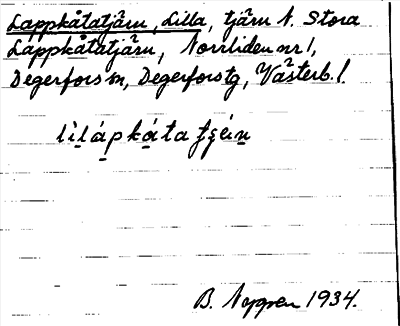 Lappkåtatjärn, Lilla, tjärn N. Stora
Lappkåtatjärn, Norrliden nr 1,
Degerfors m, Degerfors tg, Västerb. l.
B. Nygren 1934.